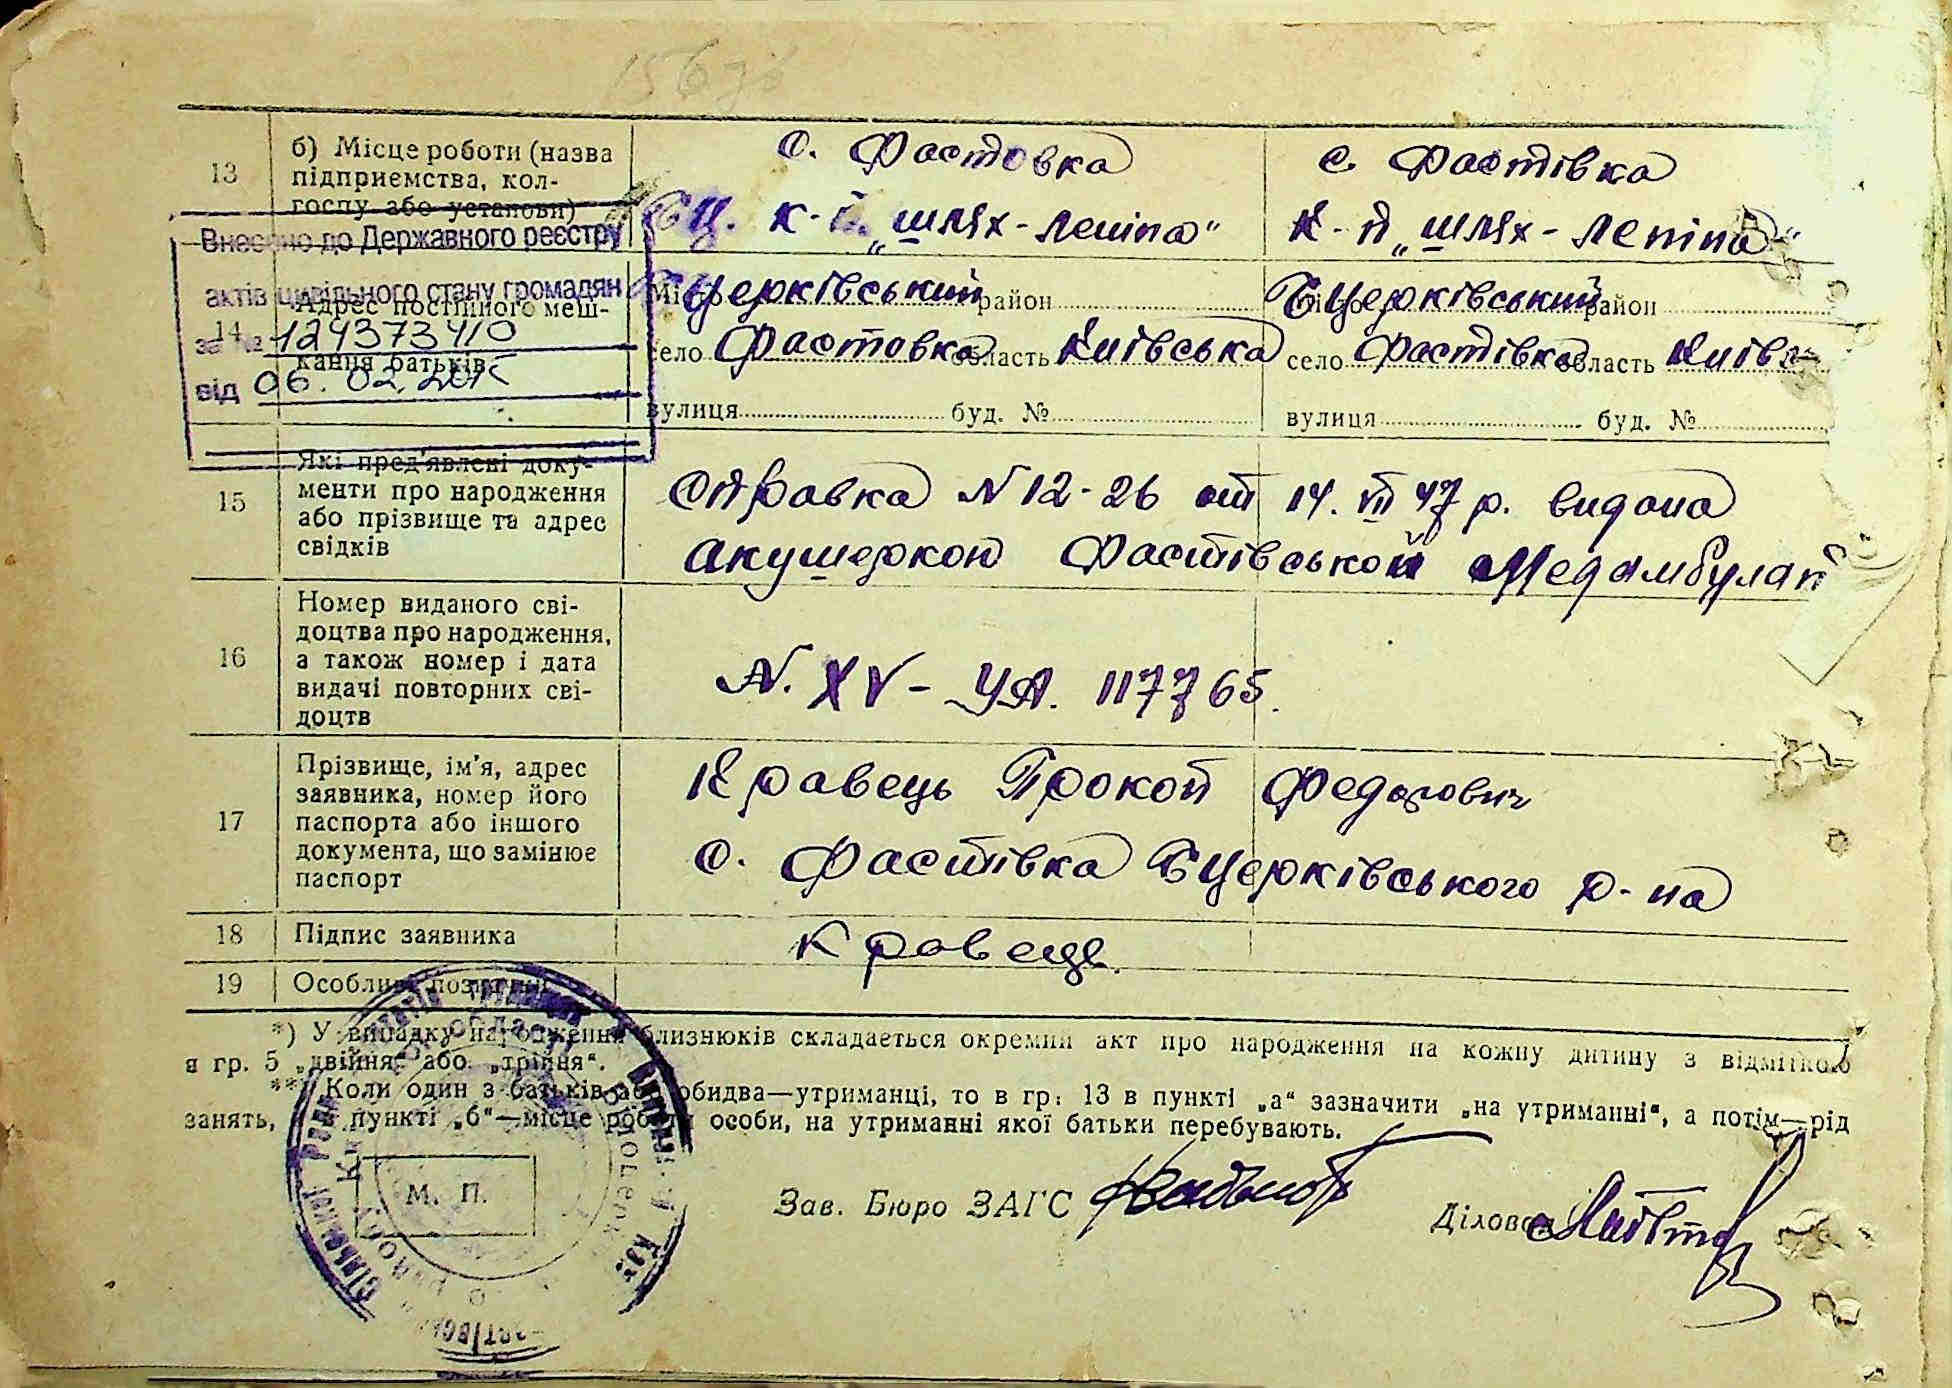 13
б) Місце роботи (назва
підприємства, кол-
госпу або установи)
с. Фастовка
Бц. к-п. „шлях-Леніна"
с. Фастівка
к-п „шлях-Леніна"
Внесено до Державного реєстру
актів цивільного стану громадян
за № 124373410
від 06. 02.
14
Адрес постійного меш-
кання батьків
Місто Бцерківський район
село Фастовка область Київська
вулиця буд. №
місто Бцерківський район
село Фастівка область Київ
вулиця буд. №
15
Які пред'явлені доку-
менти про народження
або прізвище та адрес
свідків
Справка N 12-26 от 14. VII 47 р. видана
акушеркою Фастівської Медамбулат
16
Номер виданого сві-
доцтва про народження,
а також номер і дата
видачі повторних сві-
доцтв
N. XV - УА. 117765.
17
Прізвище, ім'я, адрес
заявника, номер його
паспорта або іншого
документа, що замінює
паспорт
Кравець Прокоп Федорович
с. Фастівка Бцерківського р-на
18
Підпис заявника
Кравець.
19
Особливі позначки
*) У випадку народження близнюків складається окремий акт про народження на кожну дитину з відміткою
в гр. 5 „двійня" або „трійня".
**) Коли один з батьків або обидва—утриманці, то в гр: 13 в пункті „а" зазначити „на утриманні", а потім—рід
занять, пункті „б"—місце роботи особи, на утриманні якої батьки перебувають.
М. П.
Зав. Бюро ЗАГС
Діловод